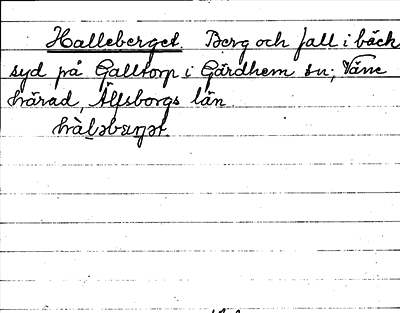 Halleberget. Berg och fall i bäck
syd på Galltorp i Gärdhem sn; Väne
härad, Älfsborgs län.